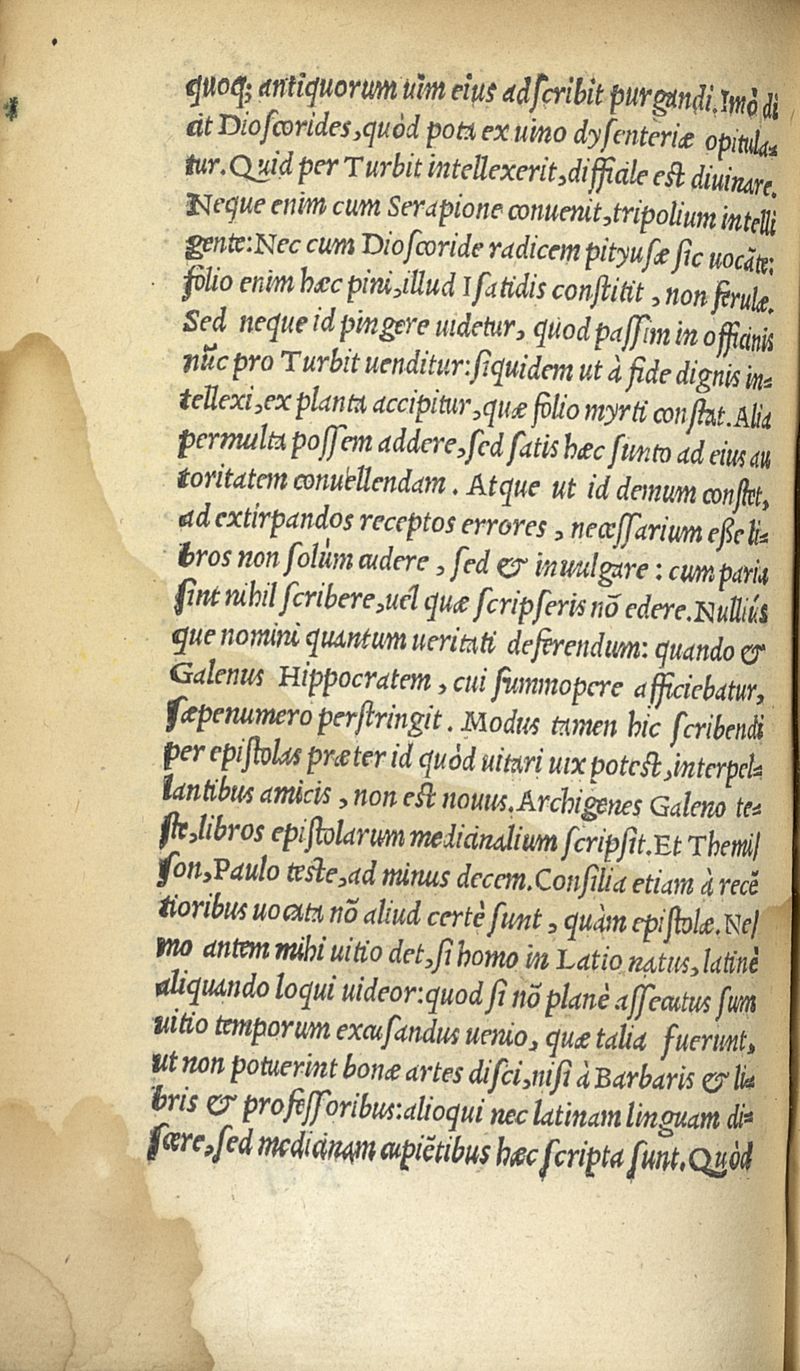 quoq; antiquorum uim eius adſcribit purgandi. Imò di
cit Dioſcorides, quòd pota ex uino dyſenteriæ opitula-
tur. Quid per Turbit intellexerit, difficile eſt diuinare.
Neque enim cum Serapione conuenit, tripolium intelli
gente: Nec cum Dioſcoride radicem pityuſæ ſic uocāte:
folio enim hæc pini, illud Iſatidis conſtitit, non ferulæ.
Sed neque id pingere uidetur, quod paſſim in officinis
nūc pro Turbit uenditur: ſiquidem ut à fide dignis in-
tellexi, ex planta accipitur, quæ folio myrti conſtat. Alia
permulta poſſem addere, ſed ſatis hæc ſunto ad eius au
toritatem conuellendam. Atque ut id demum conſtet,
ad extirpandos receptos errores, neceſſarium eſſe li-
bros non ſolùm cudere, ſed & inuulgare: cum paria
ſint nihil ſcribere, uel quæ ſcripſeris nō edere. Nullius
que nomini quantum ueritati deferendum: quando &
Galenus Hippocratem, cui ſummopere afficiebatur,
ſæpenumero perſtringit. Modus tamen hic ſcribendi
per epiſtolas præter id quòd uitari uix poteſt, interpel-
lantibus amicis, non eſt nouus. Archigenes Galeno te-
ſte, libros epiſtolarum medicinalium ſcripſit. Et Themiſ
ſon, Paulo teste, ad minus decem. Conſilia etiam à recē
tioribus uocata nō aliud certè ſunt, quàm epiſtolæ. Ne
mo autem mihi uitio det, ſi homo in Latio natus, latinè
aliquando loqui uideor: quod ſi nō planè aſſecutus ſum
uitio temporum excuſandus uenio, quæ talia fuerunt,
ut non potuerint bonæ artes diſci, niſi à Barbaris & li-
bris & profeſſoribus: alioqui nec latinam linguam di-
ſcere, ſed medicinam cupiētibus hæc ſcripta ſunt. Quòd